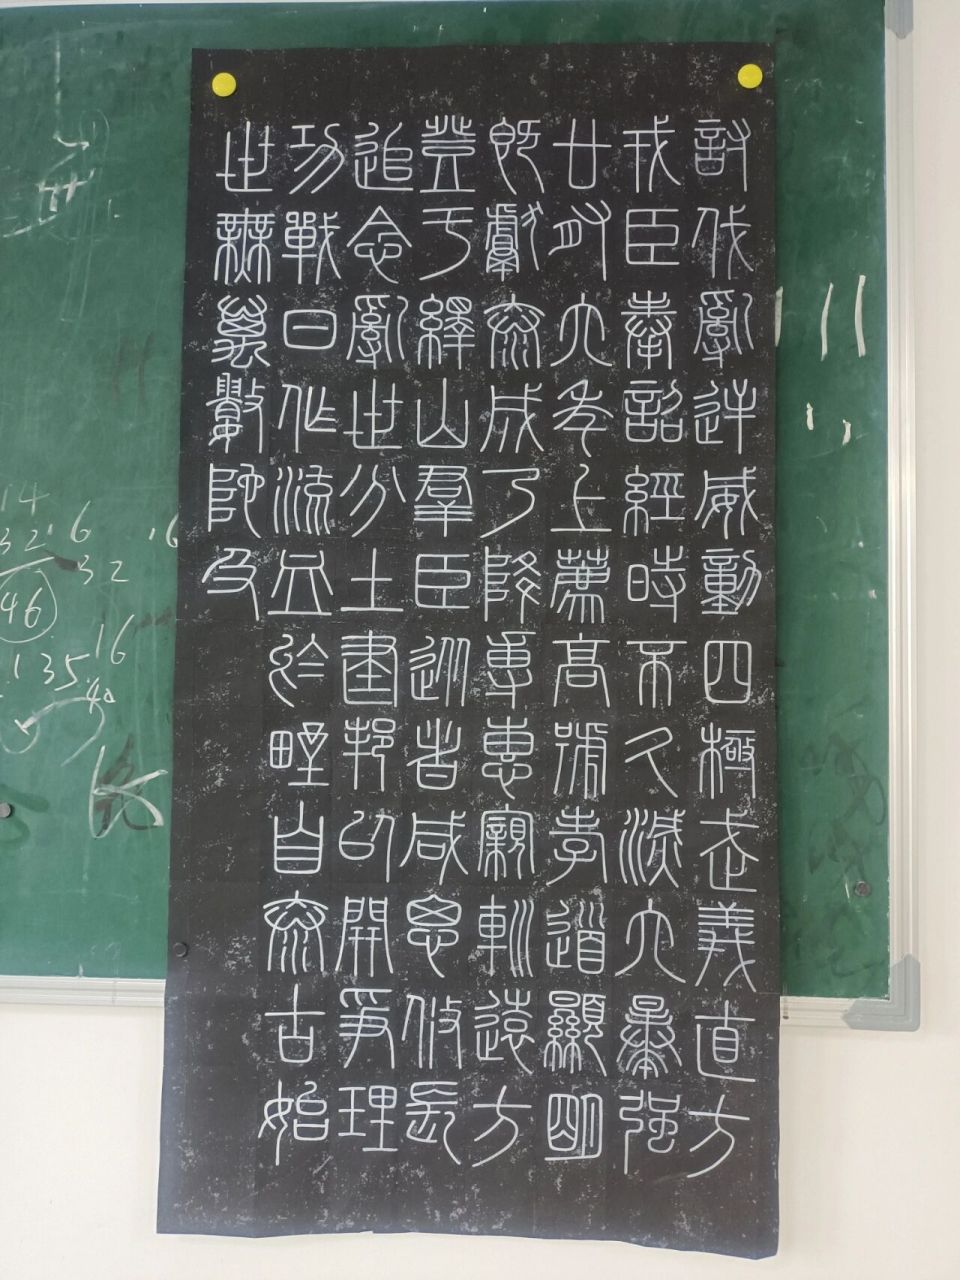 討伐亂逆威動四極武義直方
戎臣奉詔經時不久滅六暴強
廿有六年上薦高號孝道顯明
既獻泰成乃降專惠親巡遠方
登于繹山羣臣從者咸思攸長
追念亂世分土建邦以開爭理
功戰日作流血於野自泰古始
世無萬數陀及
14
32.6
.16
32
46
16
135